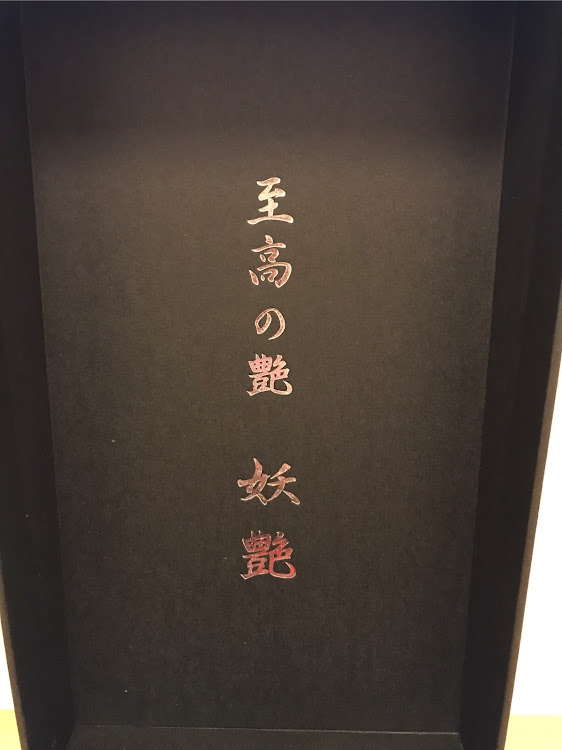 至高の艶　妖艶